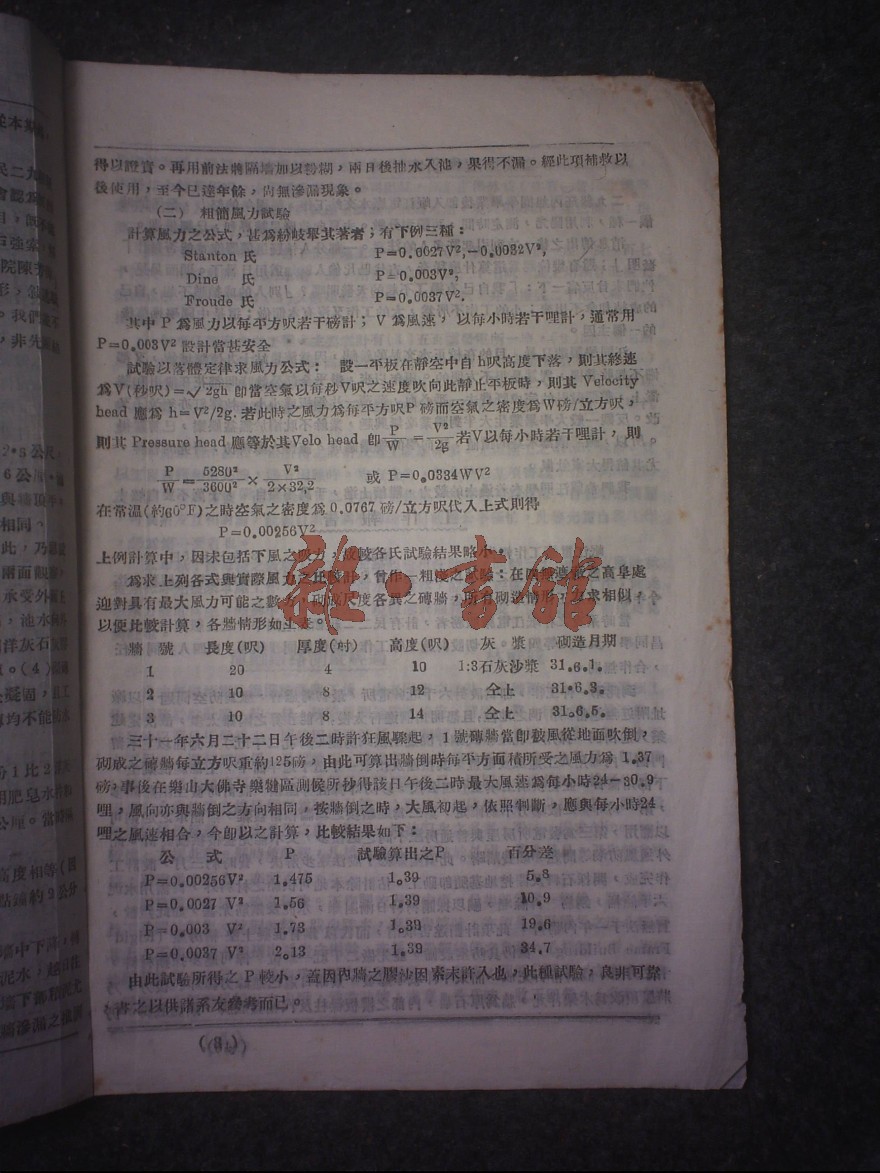 得以證實。再用前法將隔墻加以粉糊，兩日後抽水入池，果得不漏。經此項補救以
後使用，至今已達年餘，尙無滲漏現象。
（二） 粗簡風力試驗
計算風力之公式，甚爲紛岐舉其著者；有下例三種：
Stanton 氏 P=0.0027V²,-0.0032V²,
Dine 氏 P=0.003V²,
Froude 氏 P=0.0037V².
其中 P 爲風力以每平方呎若干磅計； V 爲風速， 以每小時若干哩計，通常用
P=0.003V² 設計當甚安全
試驗以落體定律求風力公式： 設一平板在靜空中自 h呎高度下落，則其終速
爲V(秒呎)=√2gh 卽當空氣以每秒V呎之速度吹向此靜止平板時，則其 Velocity
head 應爲 h=V²/2g. 若此時之風力爲每平方呎P 磅而空氣之密度爲W磅/立方呎，
則其 Pressure head 應等於其Velo head 卽 P/W = V²/2g 若V以每小時若干哩計， 則
P/W = 5280²/3600² × V²/2×32.2 或 P=0.0334WV²
在常温(約60°F)之時空氣之密度爲 0.0767 磅/立方呎代入上式則得
P=0.00256V²
上例計算中，因未包括下風之吸力，故較各氏試驗結果略小。
爲求上列各式與實際風力之比較計，曾作一粗簡之試驗：在之高阜處
迎對具有最大風力可能之數方，砌成尺度各異之磚牆，所有砌造情形，力求相似，
以便比較計算，各牆情形如上表。
牆 號 長度(呎) 厚度(吋) 高度(呎) 灰。漿 砌造月期
1 20 4 10 1:3石灰沙漿 31.6.1.
2 10 8 12 仝上 31.6.3.
3 10 8 14 仝上 31.6.5.
三十一年六月二十二日午後二時許狂風驟起， 1號磚牆當卽被風從地面吹倒，
砌成之磚牆每立方呎重約125磅，由此可算出牆倒時每平方面積所受之風力爲 1.37
磅，事後在樂山大佛寺樂犍區測候所抄得該日午後二時最大風速爲每小時24—30.9
哩，風向亦與牆倒之方向相同，按牆倒之時，大風初起，依照判斷，應與每小時24
哩之風速相合，今卽以之計算，比較結果如下：
公 式 P 試驗算出之P 百分差
P=0.00256V² 1.475 1.39 5.8
P=0.0027 V² 1.56 1.39 10.9
P=0.003 V² 1.73 1.39 19.6
P=0.0037 V² 2.13 1.39 34.7
由此試驗所得之 P 較小，蓋因內牆之膠沙因素未許入也，此種試驗，良非可靠
書之以供諸系友參考而已。
(8)
雜·書館